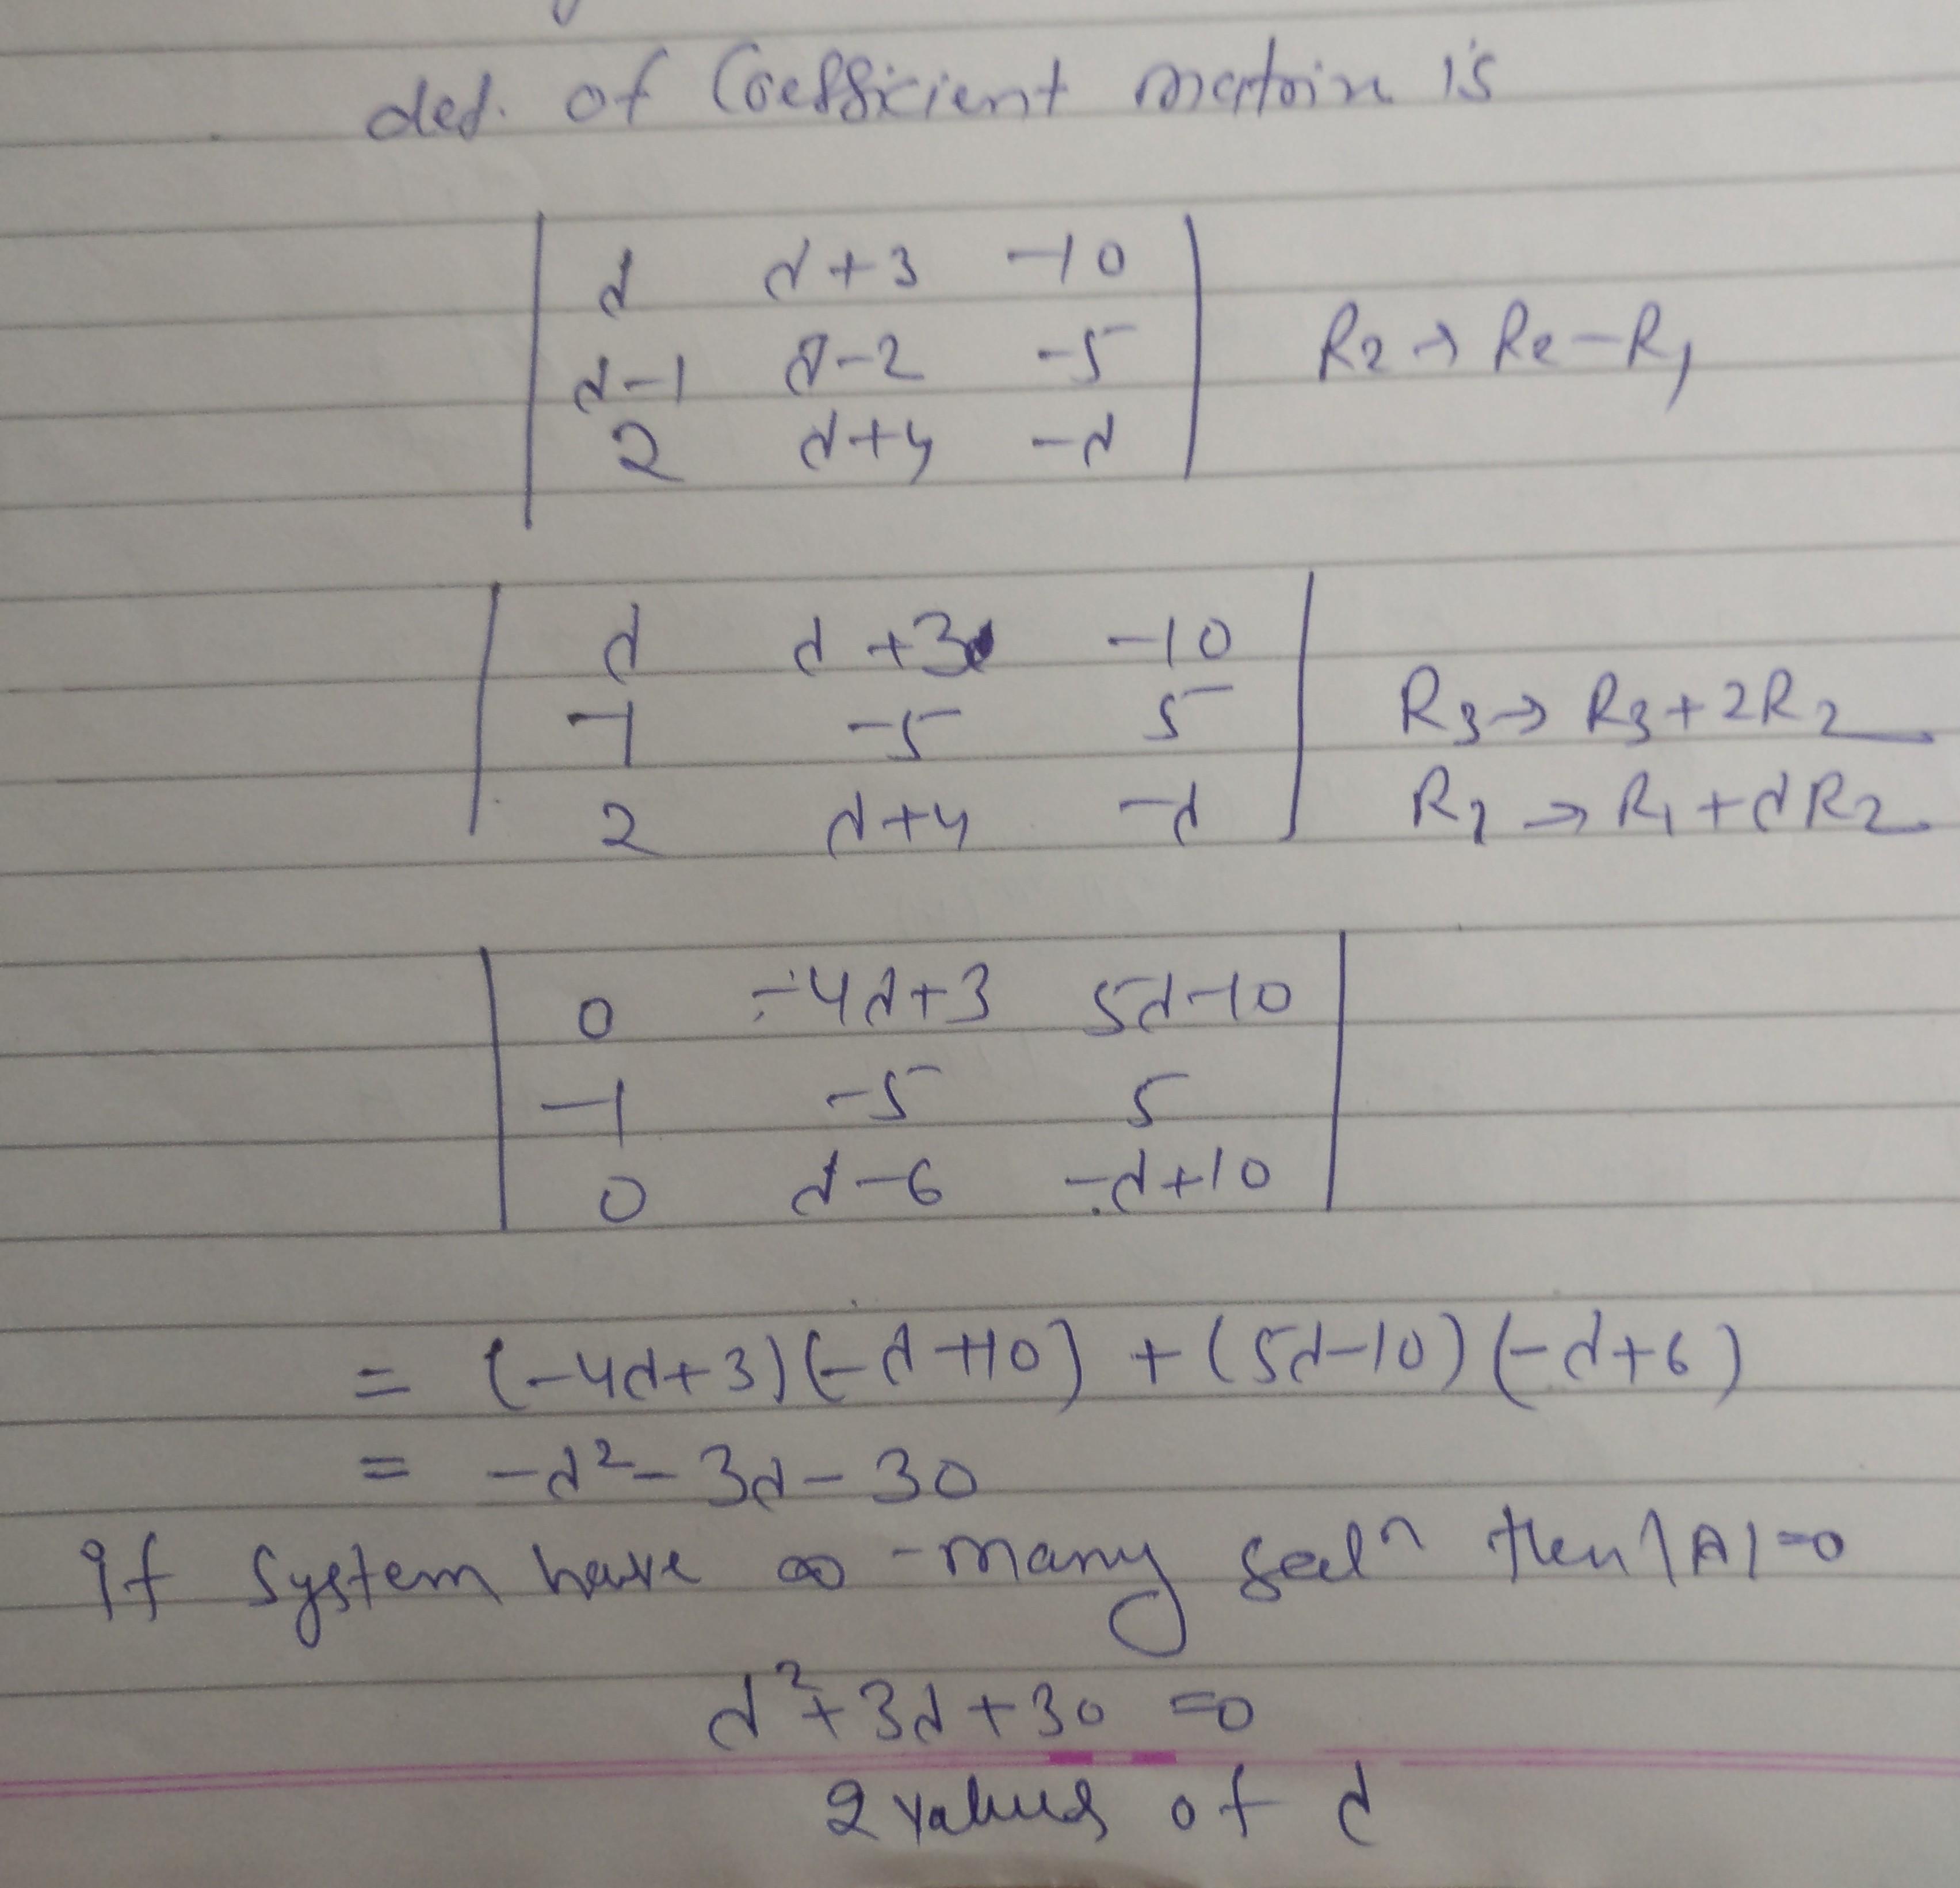 det. of Coefficient matrix is
| d d+3 -10 |
| d-1 d-2 -5 | R2 → R2 - R1
| 2 d+4 -d |
| d d+3 -10 |
| -1 -5 5 | R3 → R3 + 2R2
| 2 d+4 -d | R1 → R1 + dR2
| 0 -4d+3 5d-10 |
| -1 -5 5 |
| 0 d-6 -d+10 |
= (-4d+3)(-d+10) + (5d-10)(-d+6)
= -d² - 3d - 30
if system have ∞ - many solⁿ then |A|=0
d²+3d+30 =0
2 values of d